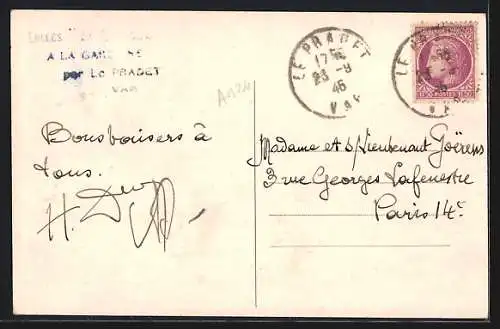 A LA GARONNE
par Le PRADET
VAR
A1124
LE PRADET
17 45
23 -9
46
VAR
Bons baisers à
tous.
H.
Madame et s/Lieutenant Goërens
3 rue Georges Lafenestre
Paris 14e